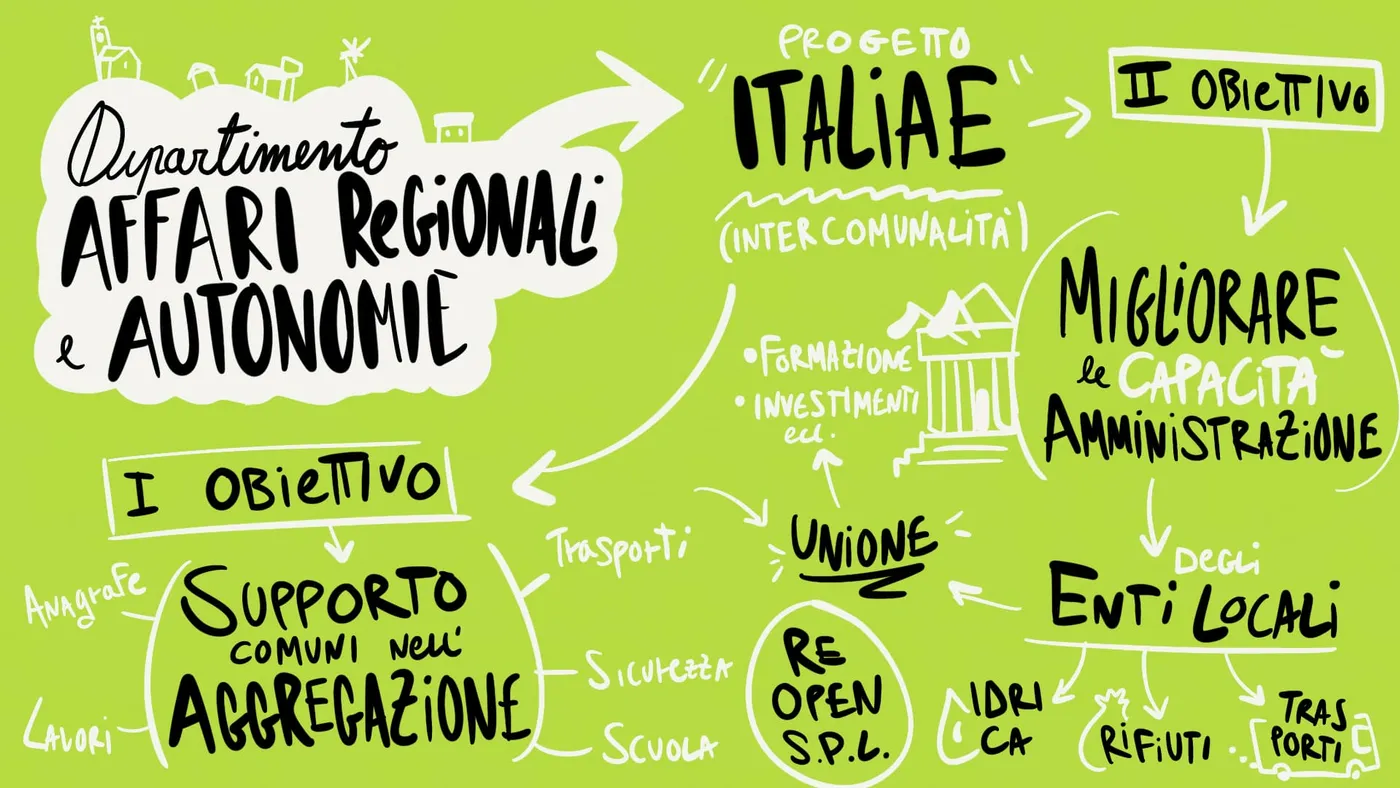 Dipartimento
AFFARI ReGiONALi
e AUTONOMIE
PROGETTO
"ITALiAE"
(INTERCOMUNALITÀ)
II OBiETTIVO
MIGLiORARE
le CAPACiTÀ
AMMiNiSTRAZiONE
DEGLi
ENTi LOCALi
IDRI
CA
RiFiUTI
TRAS
PORTI
• FORMAZIONE
• INVESTIMENTI
ecc.
UNiONE
RE
OPEN
S.P.L.
I OBiETTIVO
SUPPORTO
COMUNI Nell'
AGGREGAZiONE
Anagrafe
Lavori
Trasporti
Sicurezza
Scuola